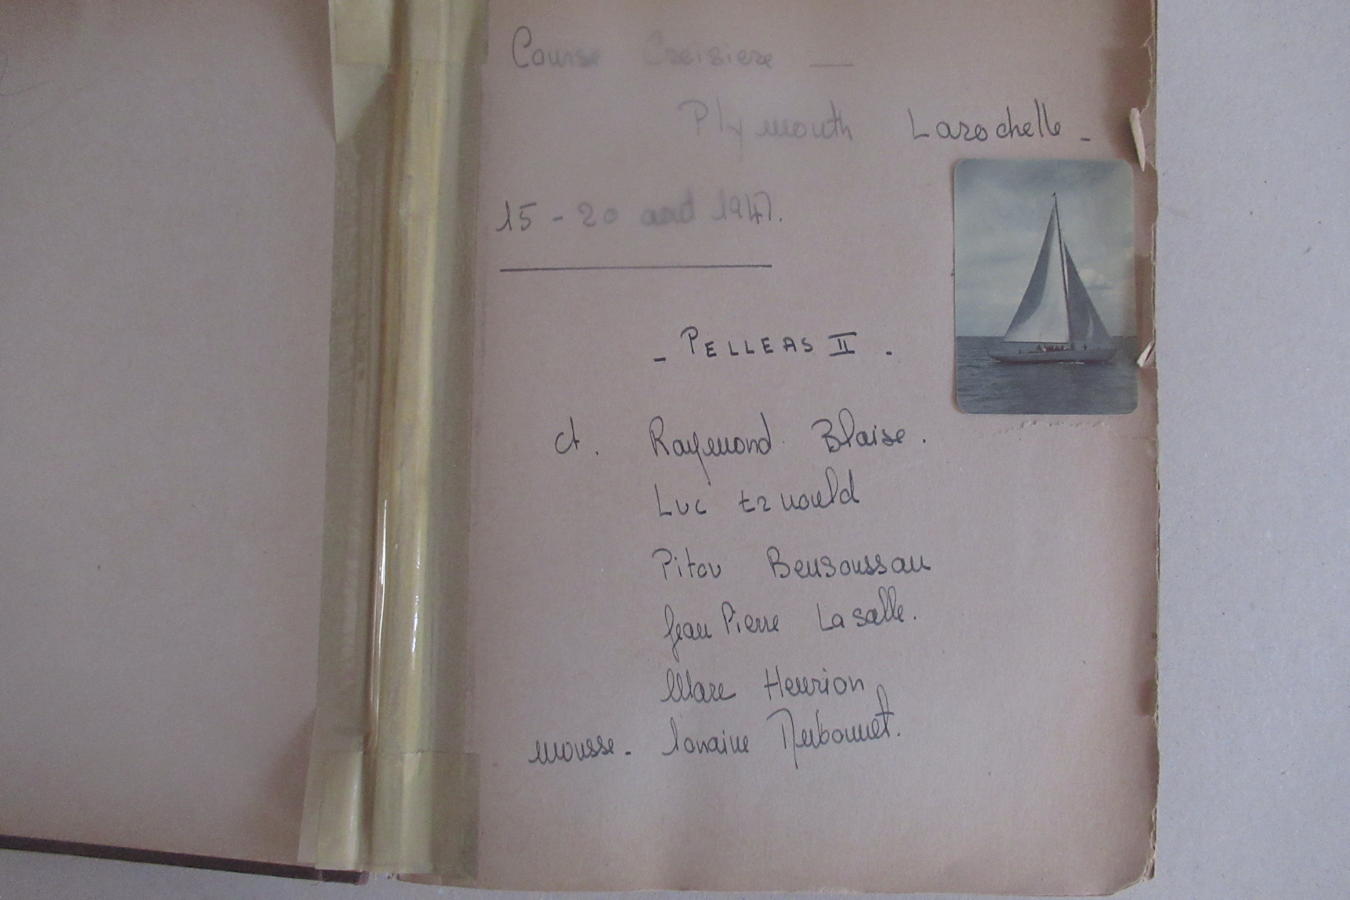 Course Croisiere —
Plymouth Larochelle -
15 - 20 aout 1947.
- PELLEAS II .
ct. Raymond Blaise.
Luc Ernould
Pitou Bensoussan
Jean Pierre Lasalle.
Marc Henrion
mousse - Loraine Dubonnet.